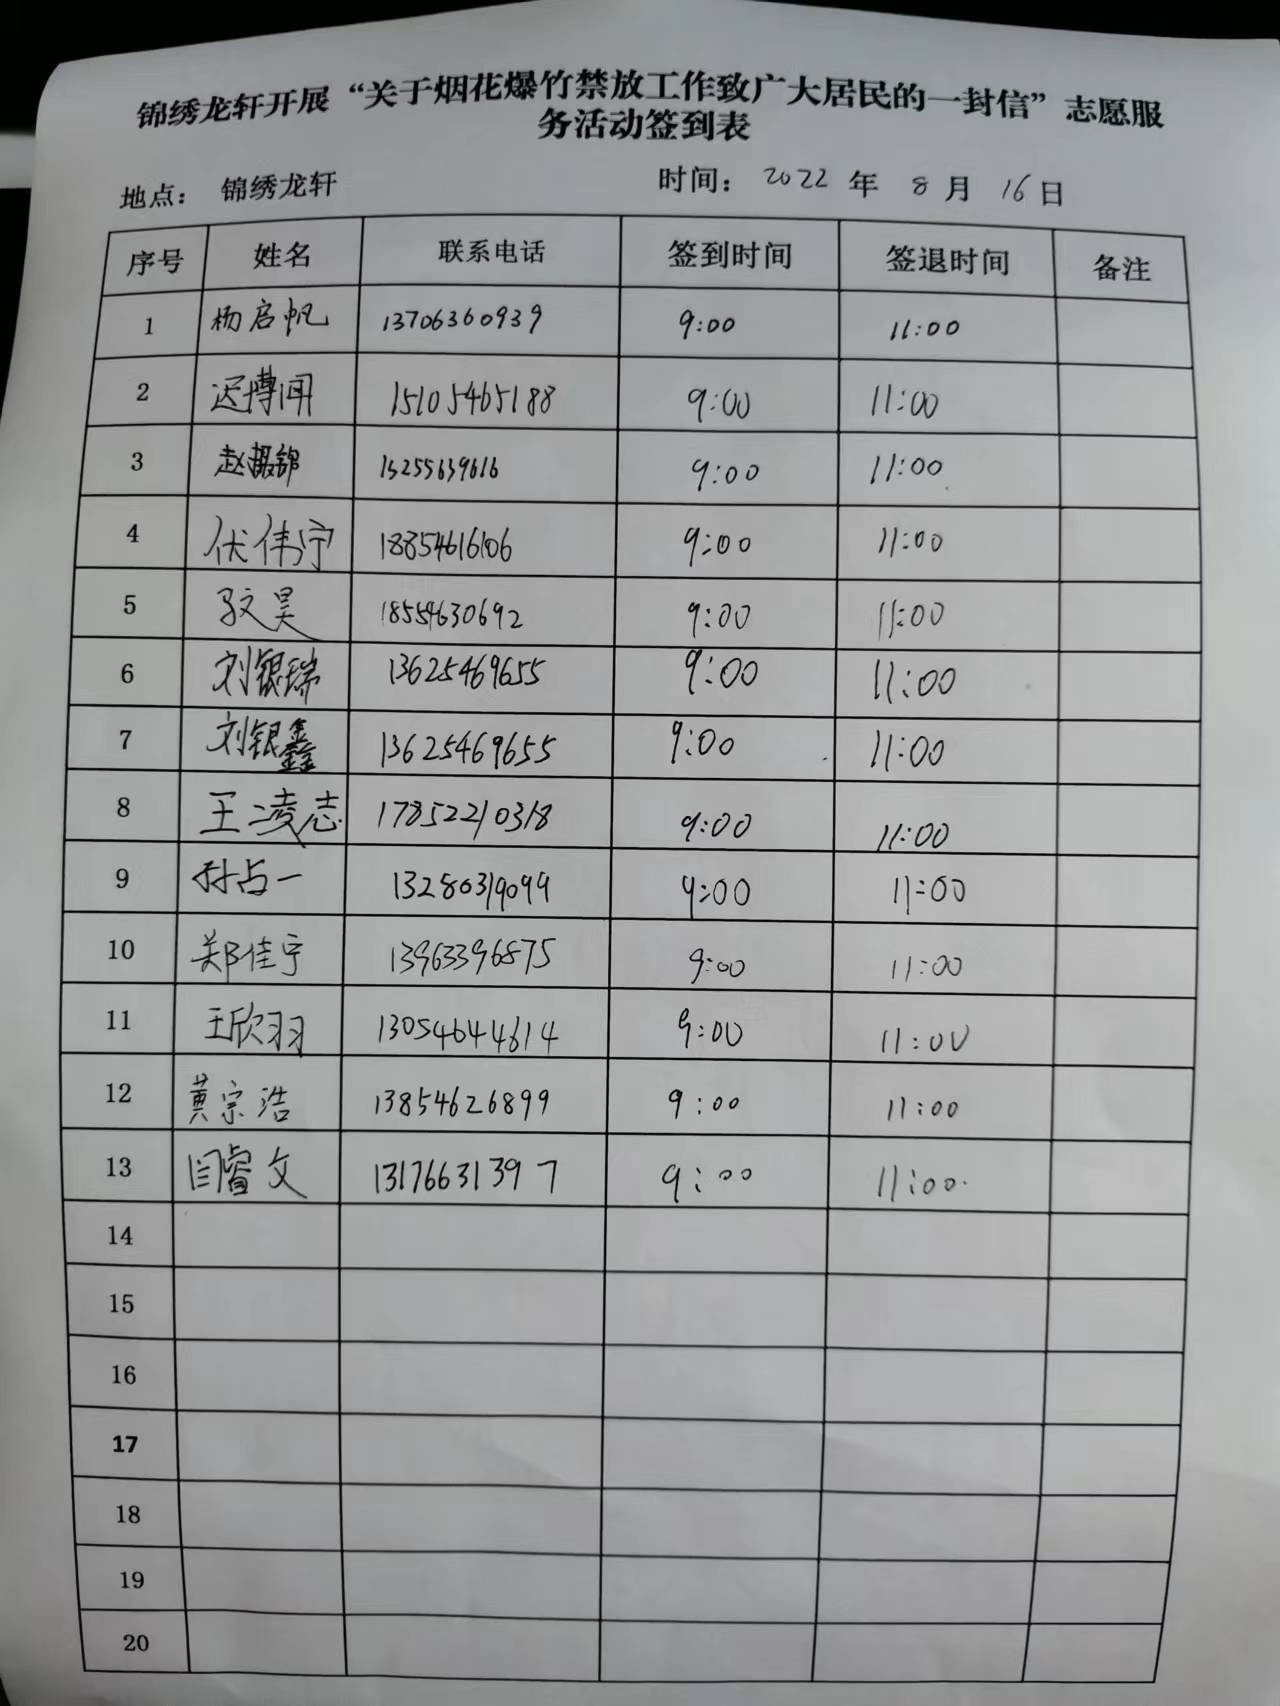 锦绣龙轩开展“关于烟花爆竹禁放工作致广大居民的一封信”志愿服
务活动签到表
地点： 锦绣龙轩 时间：2022 年 8 月 16 日
序号 姓名 联系电话 签到时间 签退时间 备注
1 杨启帆 13706360939 9:00 11:00
2 迟博闻 15105465188 9:00 11:00
3 赵振锦 13255639616 9:00 11:00
4 伏伟宁 18854616106 9:00 11:00
5 文昊 18554630692 9:00 11:00
6 刘银瑞 13625469655 9:00 11:00
7 刘银鑫 13625469655 9:00 11:00
8 王凌志 17852210318 9:00 11:00
9 孙占一 13280319099 9:00 11:00
10 郑佳宁 13963396875 9:00 11:00
11 王欣羽 13054644614 9:00 11:00
12 黄宗浩 13854626899 9:00 11:00
13 闫睿文 13176631397 9:00 11:00
14
15
16
17
18
19
20